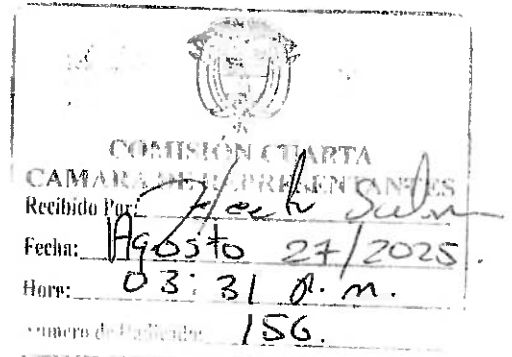 COMISIÓN CUARTA
CAMARA DE REPRESENTANTES
Recibido Por:
Fecha: Agosto 27/2025.
Hora: 03:31 p.m.
Numero de Radicado: 156.